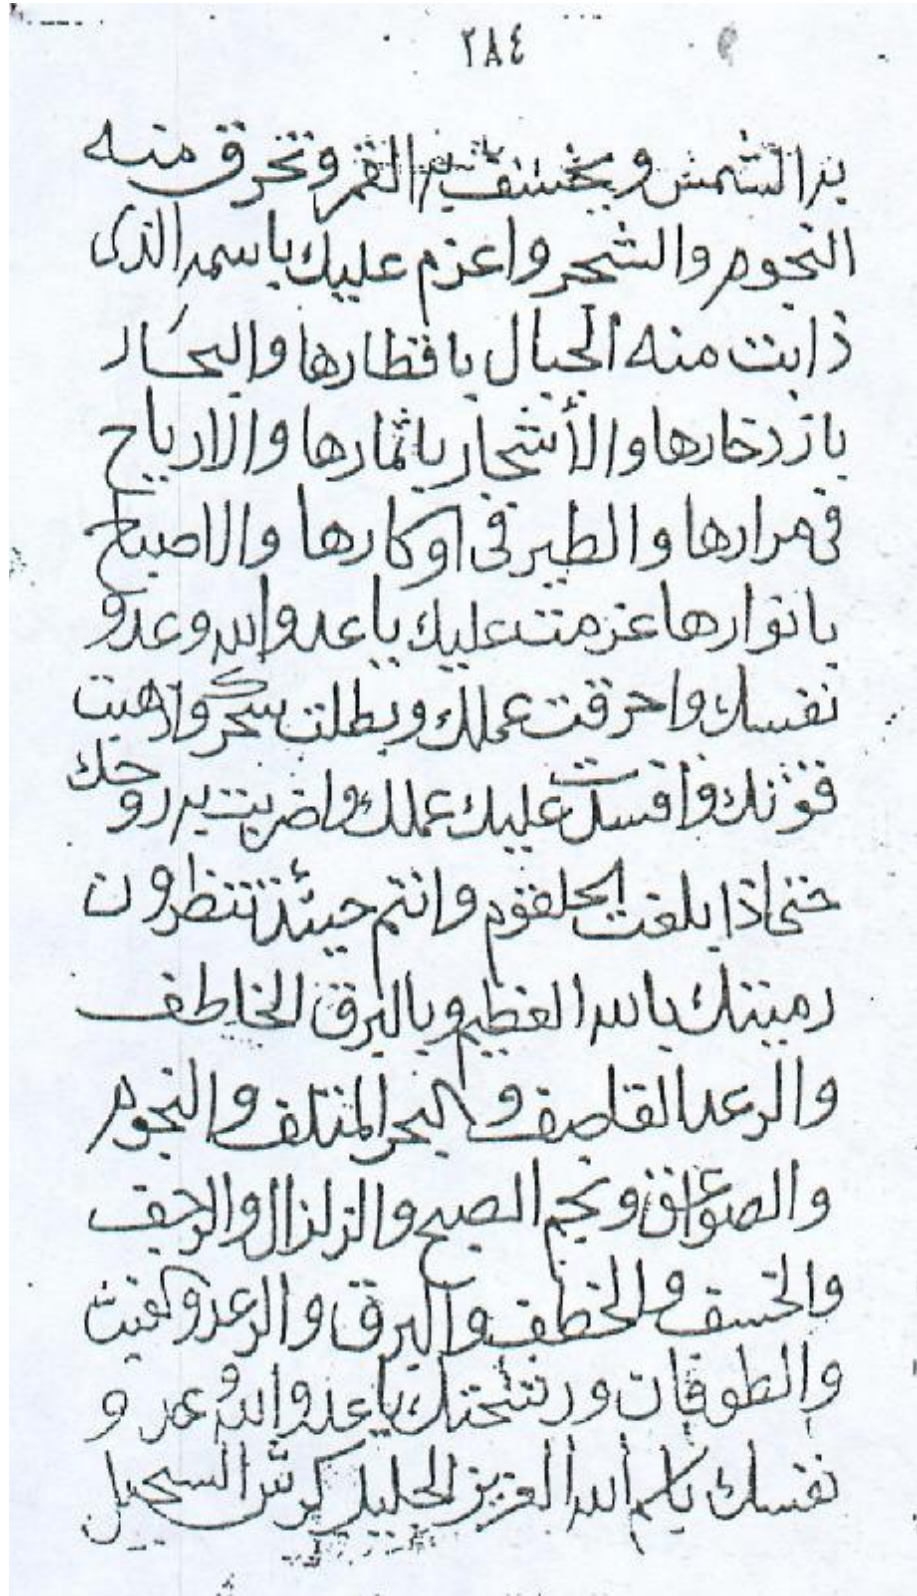 ٢٨٤
به الشمس ويخسف به القمر وتخرق منه
النجوم والشجر واعزم عليك باسمه الذى
ذابت منه الجبال باقطارها والبحار
بازدخارها والأشجار باثمارها والارياح
فى مرارها والطير فى اوكارها والاصباح
بانوارها عزمت عليك يا عدو الله وعدو
نفسك واحرقت عملك وبطلت سحرك واذهبت
قوتك وافسدت عليك عملك واضربت به روحك
حتى اذا بلغت الحلقوم وانتم حينئذ تنظرون
رميتك بالله العظيم وبالبرق الخاطف
والرعد القاصف والبحر المتلف والنجوم
والصواعق ونجم الصبح والزلزال والرجف
والخسف والخطف والبرق والرعد والغيث
والطوفان و يا عدو الله وعدو
نفسك باسم الله العزيز الجليل كرش السجيل